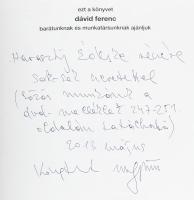 ezt a könyvet
dávid ferenc
barátunknak és munkatársunknak ajánljuk
Haraszti
sok-sok szeretettel
(közös munkánk a
dvd-melléklet 247-251
oldalán található)
2013 május